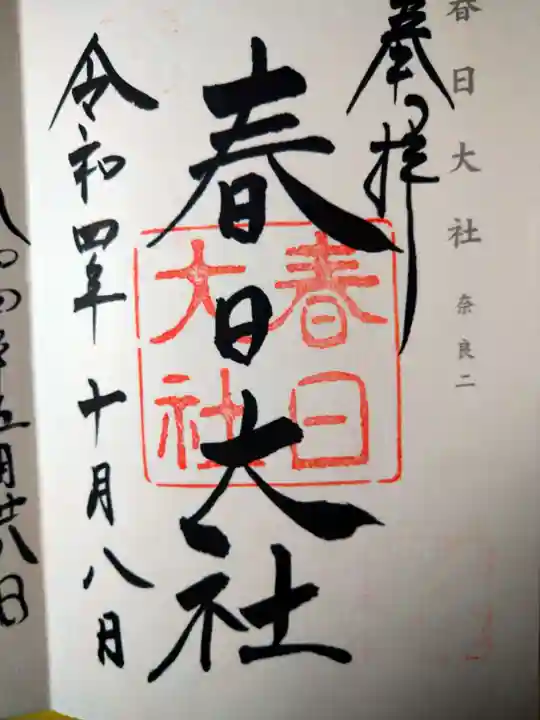 春日大社 奈良二
奉拝
春日大社
春日大社
令和四年十月八日
四年五月廿八日